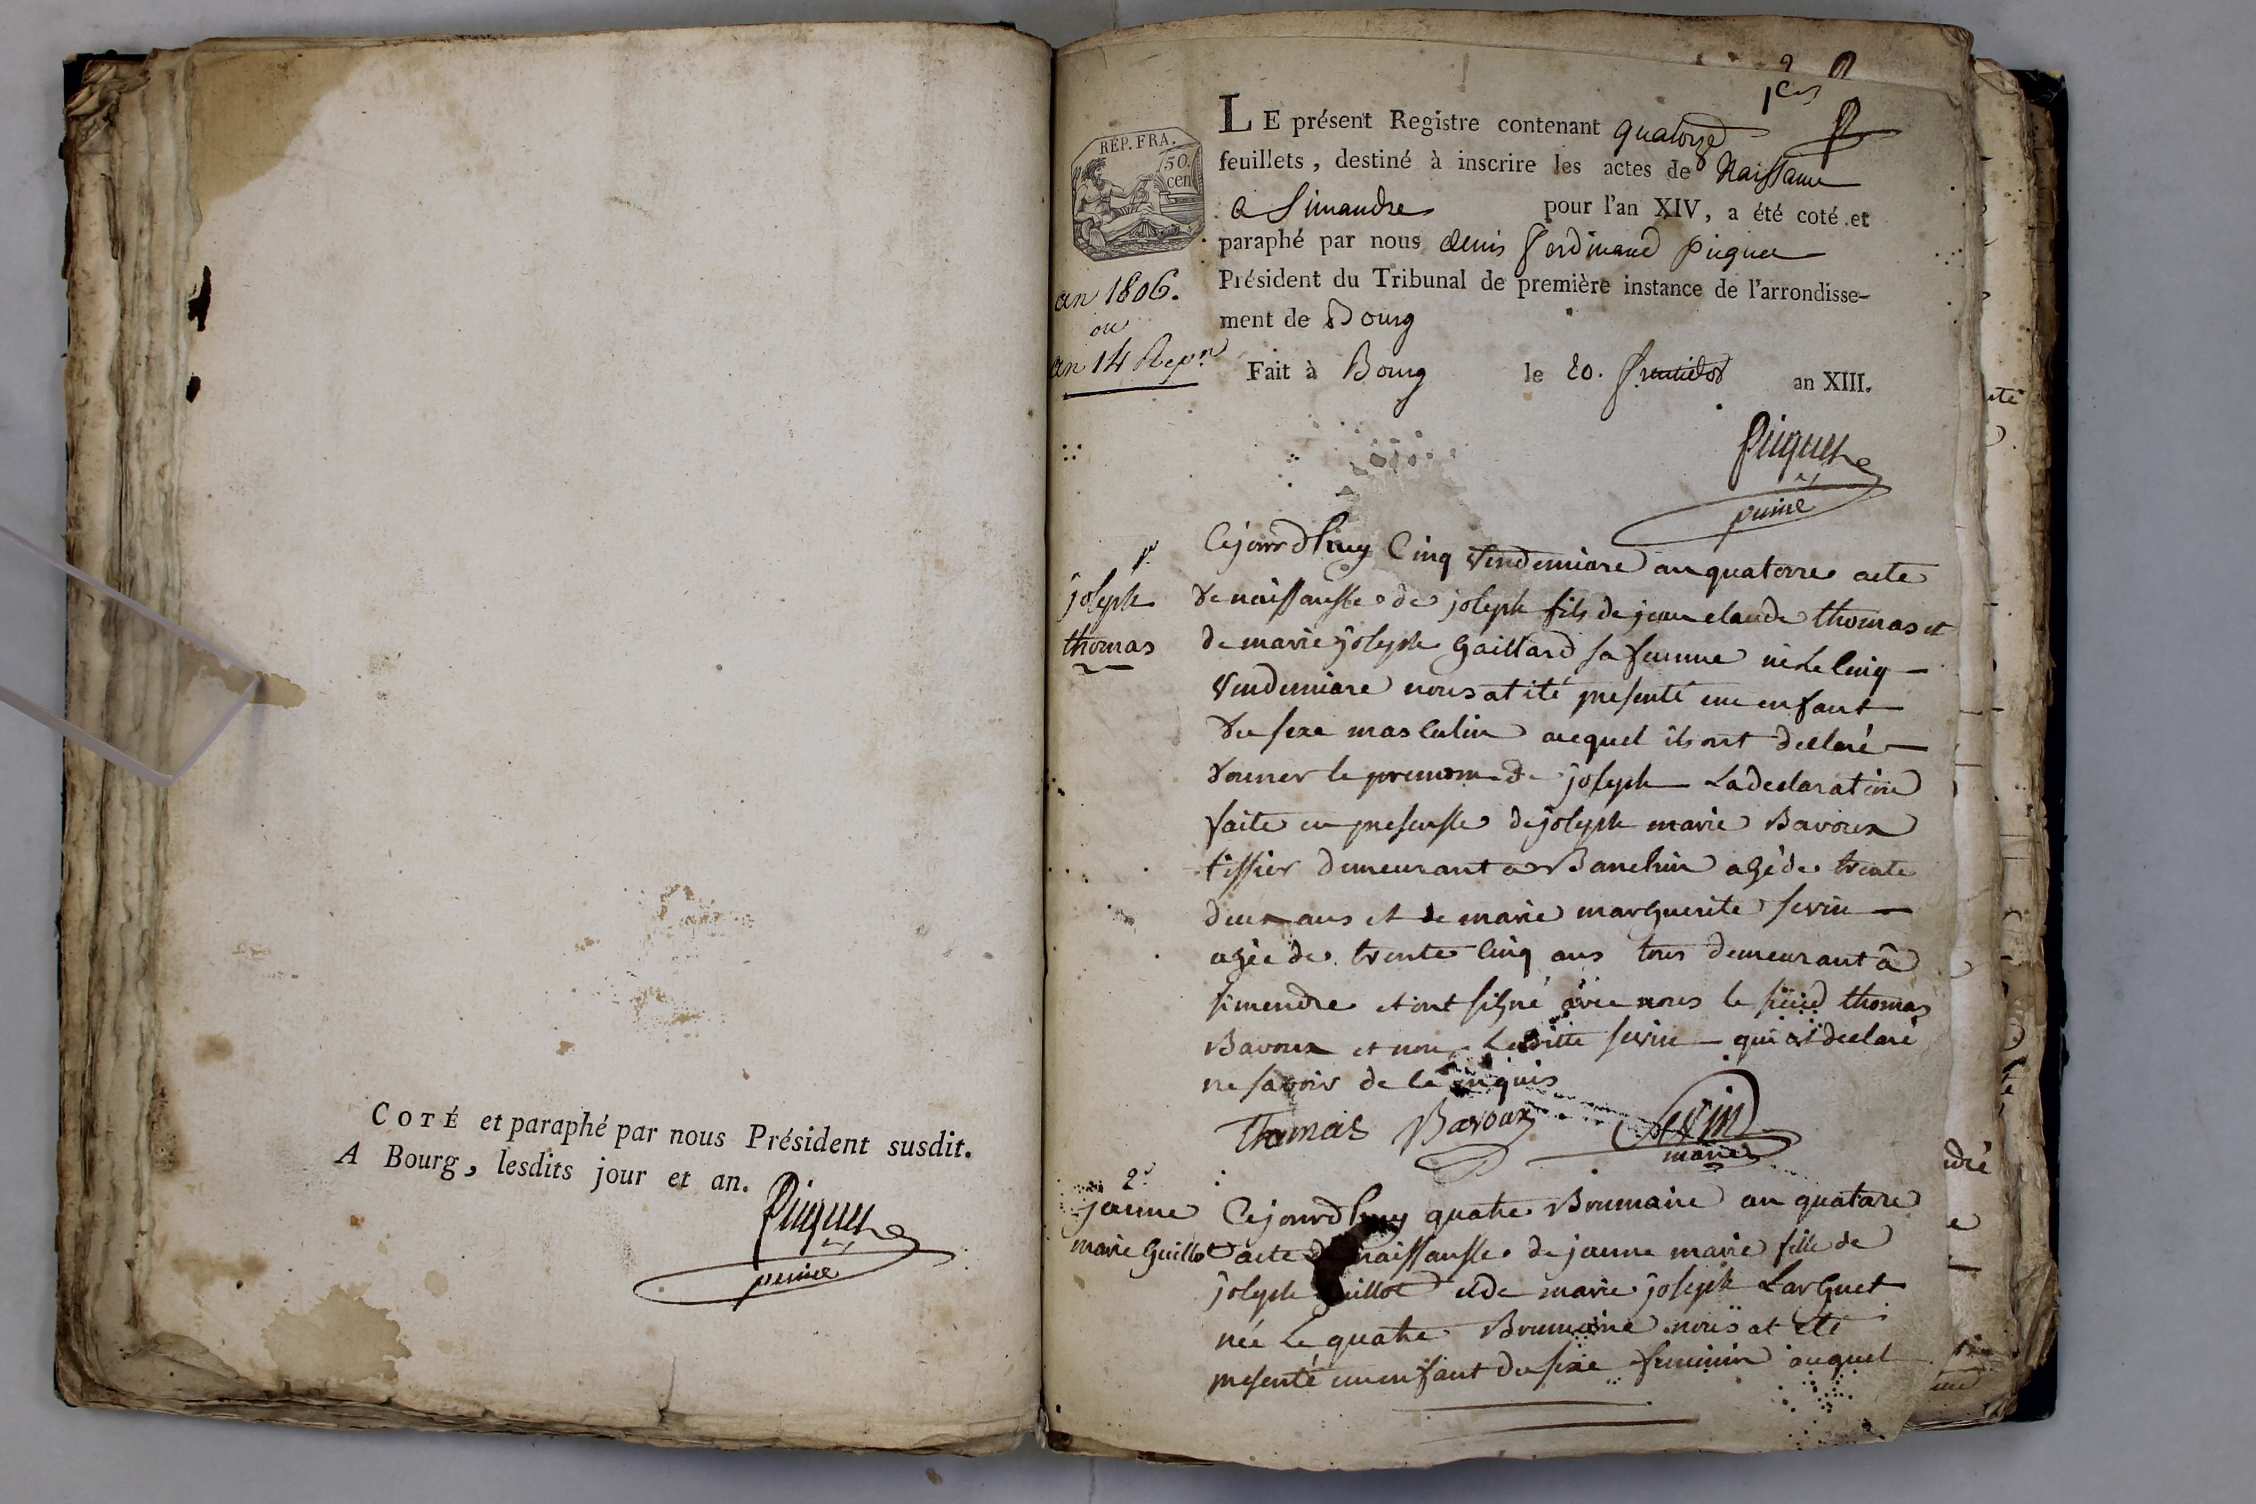 COTÉ et paraphé par nous Président susdit.
A Bourg, lesdits jour et an.
Puiquet
puiné
REP. FRA.
50
cen
an 1806.
ou
an 14 Rep.n
LE présent Registre contenant quatorze
feuillets, destiné à inscrire les actes de Naissance
a Simandre pour l'an XIV, a été coté et
paraphé par nous denis ferdinand
Président du Tribunal de première instance de l'arrondisse-
ment de Bourg
Fait à Bourg le 20. fructidor an XIII.
puiné
joseph
thomas
Cejourdhuy Cinq Vendemiare an quatorze acte
de naissansse de joseph fils de jean claude thomas et
de marie joseph Gaillard sa femme né le cinq
Vendemiare nous at été presenté un enfant
du sexe masculin auquel ils ont declaré
donner le prenom de joseph La declaration
faite en presensse de joseph marie Bavoux
tissier demeurant a Banchin agé de trente
deux ans et de marie marguerite sevin
agée de trente cinq ans tous demeurant â
simendre et ont signé avec nous le thomas
Bavoux et non Laditte sevin qui a declaré
ne savoir de ce enquis
Thomas Bavoux Sevin
maire
2.
jeanne
marie Guillot
Cejourdhuy quatre Brumaire an quatorze
acte de naissansse de jeanne marie fille de
joseph Guillot et de marie joseph Larguet
née Le quatre Brumaire nous at été
presenté un enfant du sexe feminin auquel